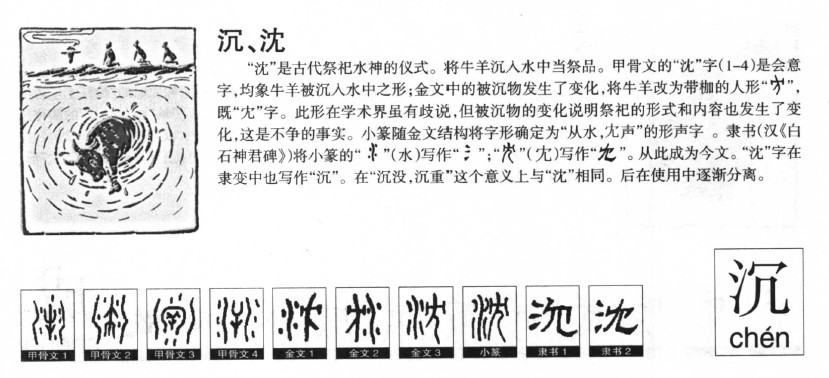 沉、沈
“沈”是古代祭祀水神的仪式。将牛羊沉入水中当祭品。甲骨文的“沈”字(1-4)是会意
字,均象牛羊被沉入水中之形;金文中的被沉物发生了变化,将牛羊改为带枷的人形“”,
既“冘”字。此形在学术界虽有歧说,但被沉物的变化说明祭祀的形式和内容也发生了变
化,这是不争的事实。小篆随金文结构将字形确定为“从水,冘声”的形声字 。隶书(汉《白
石神君碑》)将小篆的“”(水)写作“氵”;“”(冘)写作“”。从此成为今文。“沈”字在
隶变中也写作“沉”。在“沉没,沉重”这个意义上与“沈”相同。后在使用中逐渐分离。
沉
chén
甲骨文1 甲骨文2 甲骨文3 甲骨文4 金文1 金文2 金文3 小篆 隶书1 隶书2